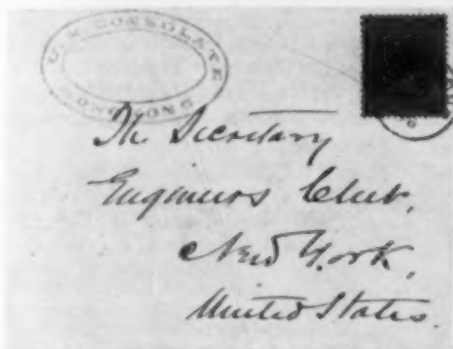 U.S. CONSULATE
HONG KONG
The Secretary
Engineers Club,
New York,
United States.